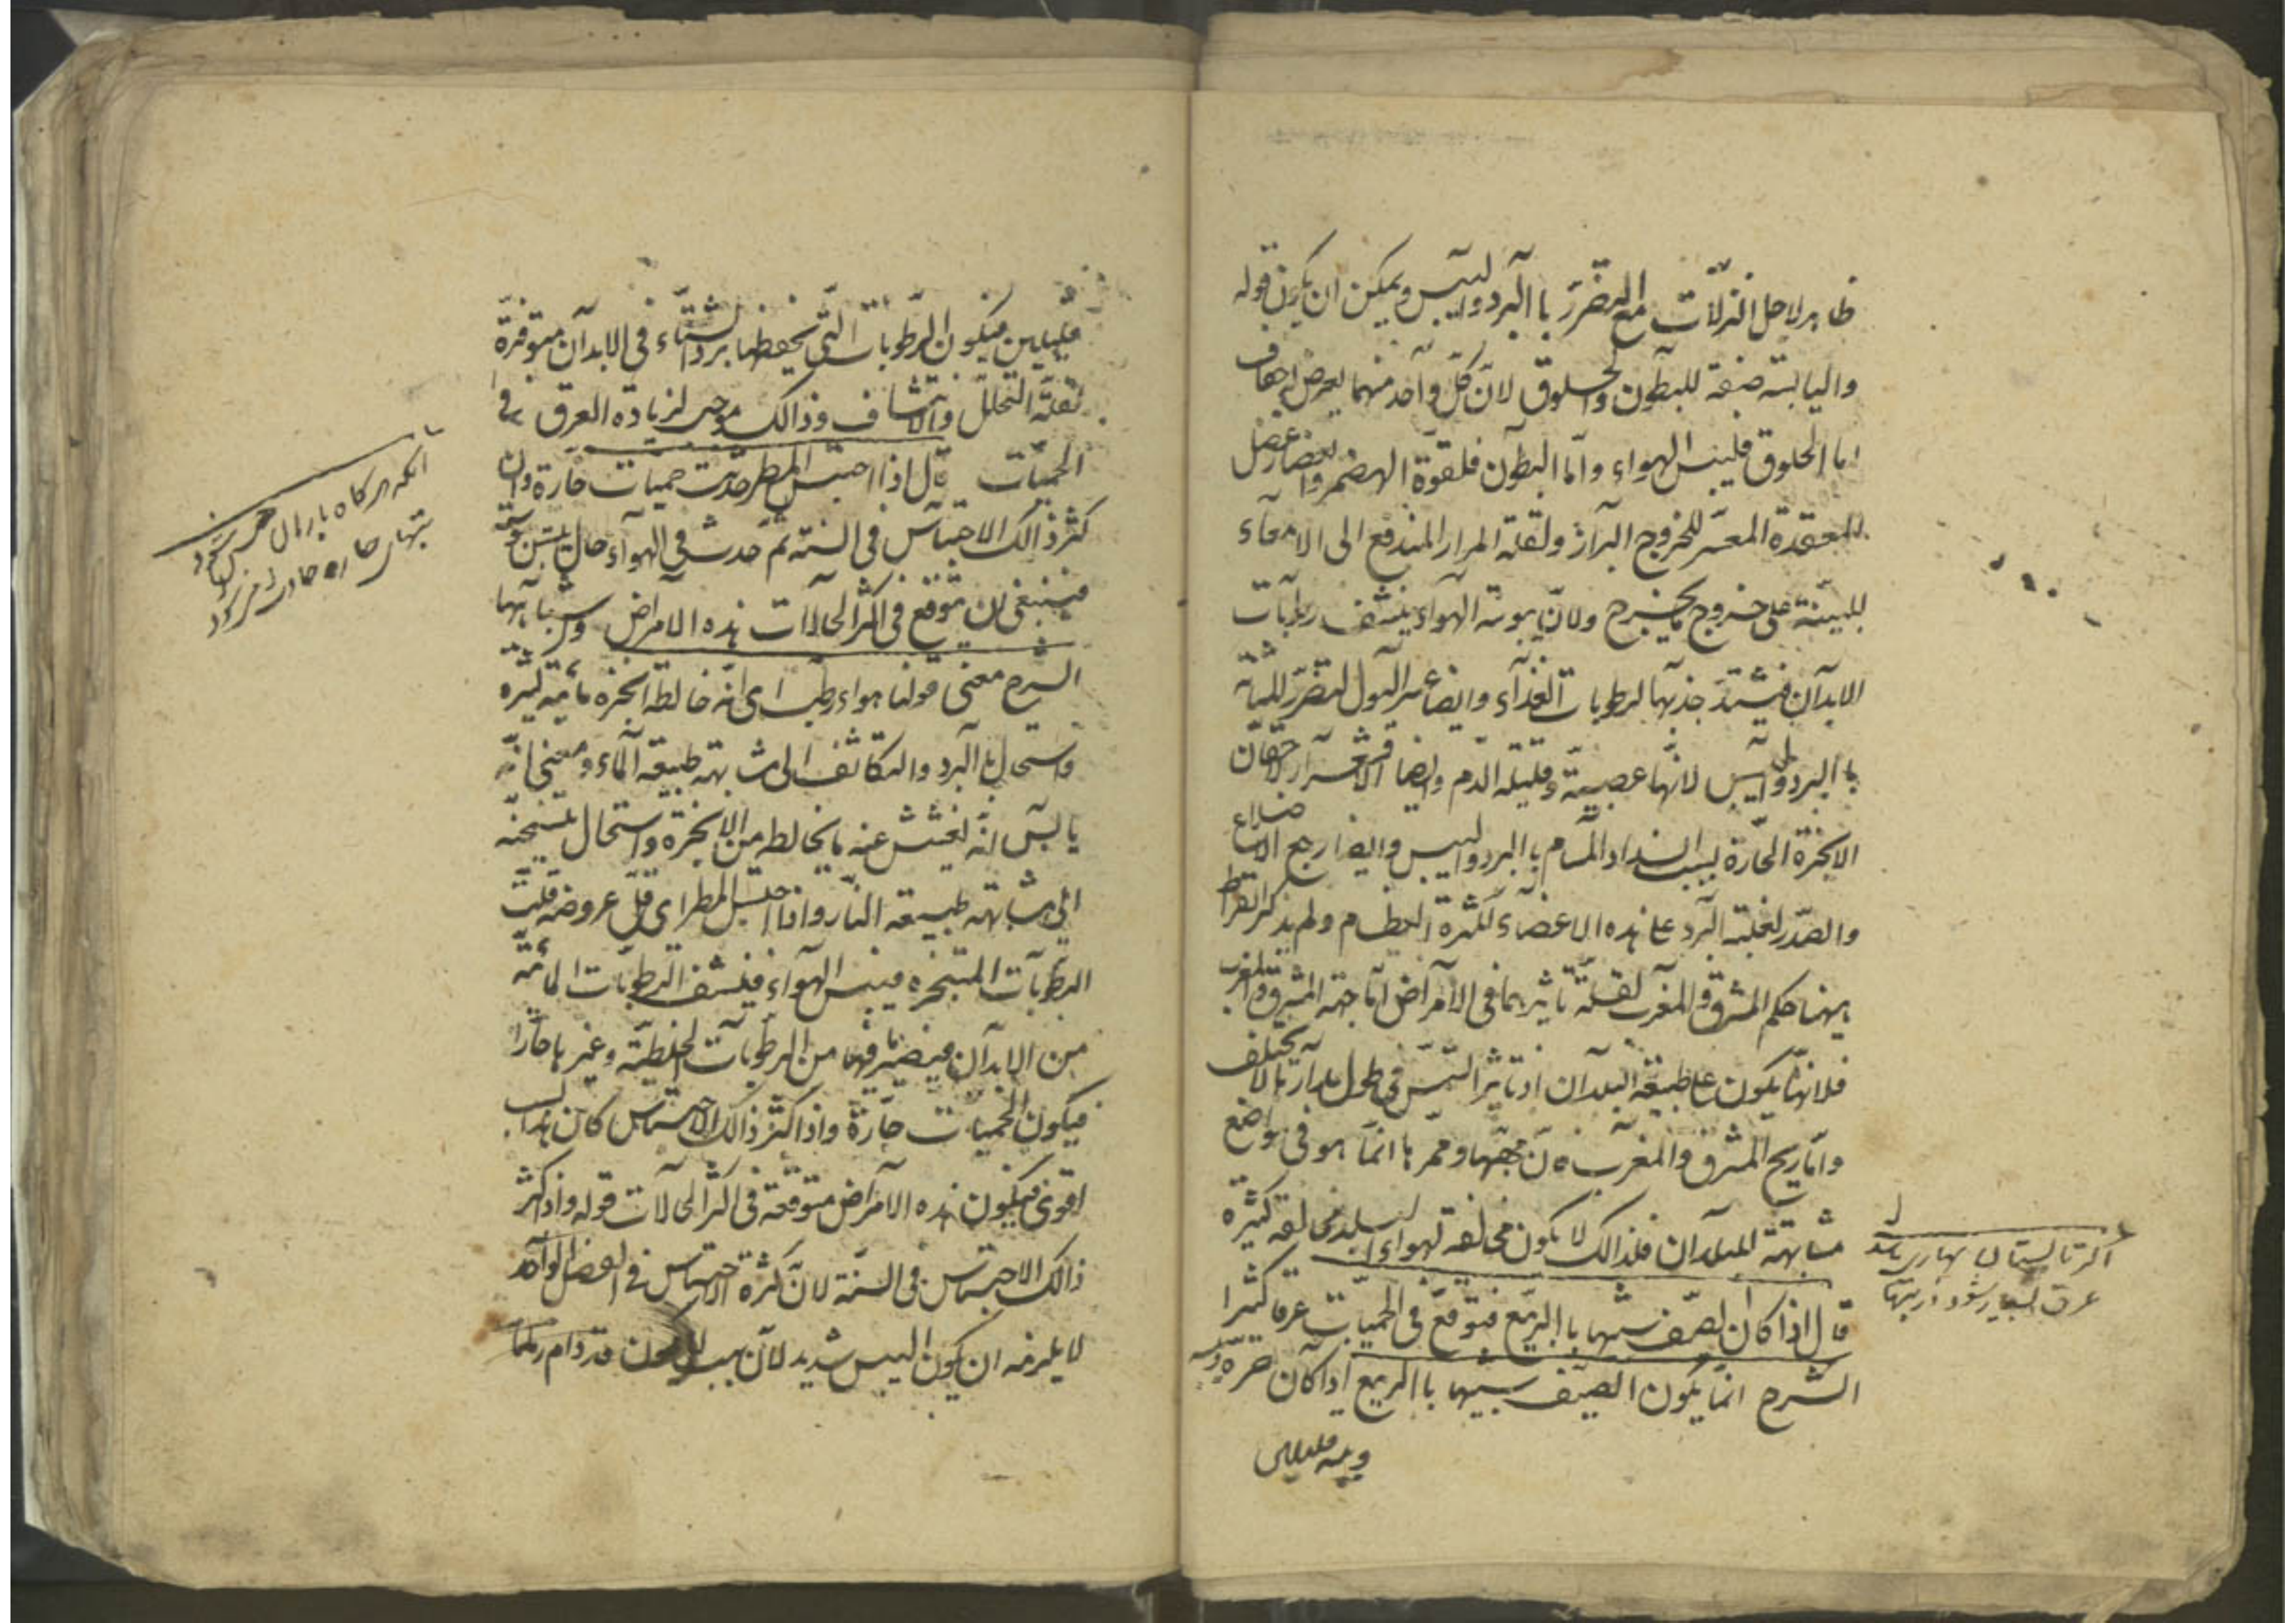 ظاهر لاجل النزلات مع التضرر باالبرد واليبس ويمكن ان يكون قوله
واليابسة صفة للبطون والحلوق لان كل واحد منهما يعرض له جفاف
اما الحلوق فليبس الهواء واما البطون فلقوة الهضم وايضا يعصل
للمعقدة المعسر للخروج البراز ولقلة المرار المندفع الى الامعاء
للمنبة على خروج ما يخرج ولان يبوسة الهواء ينشف رطوبات
الابدان فيشتد جذبها لرطوبات الغذاء وايضا عسر البول لتضرر المثانة
باالبرد واليبس لانها عصبية وقليلة الدم وايضا الاقشعرار لاحتقان
الابخرة الحارة بسبب انسداد المسام باالبرد واليبس وايضا وجع الاضلاع
والصدر لغلبة البرد على هذه الاعضاء لكثرة العظام ولم يذكر ابقراط
ههنا حكم المشرق والمغرب لقلة تاثيرهما في الامراض اما جهة المشرق والمغرب
فلانها يكون على طبيعة البلدان اذ تاثير الشمس في طول مدارها لا يختلف
واما ريح المشرق والمغرب فان مهبها وممرها انما هو في مواضع
مشابهة للبلدان فلذالك لا يكون مخالفة لهواء البلد مخالفة كثيرة
قال اذا كان الصيف شبيها باالربيع فتوقع في الحميات عرقا كثيرا
الشرح انما يكون الصيف شبيها باالربيع اذا كان حره
ويبسه قليلين
اگر تابستان بهارى باشد
عرق بسيار شود در تبها
قليلين فيكون الرطوبات التي يحفظها برد الشتاء في الابدان متوفرة
لقلة التحلل والانتشاف وذالك موجب لزيادة العرق في
الحميات قال اذا احتبس المطر حدثت حميات حارة وان
كثر ذالك الاحتباس في السنة ثم حدث في الهواء حال يبس
فينبغي ان يتوقع في اكثر الحالات هذه الامراض واشباهها
الشرح معنى قولنا هواء رطب اى انه خالطه ابخرة مائية كثيرة
واستحال باالبرد والتكاثف الى مشابهة طبيعة الماء ومعنى انه
يابس انه ينفش عنه ما يخالطه من الابخرة واستحال بتسخنه
الى مشابهة طبيعة النار واذا احتبس المطر اى قل عروضه قلت
الرطوبات المتبخرة فيبس الهواء فينشف الرطوبات المائية
من الابدان فيصير ما فيها من الرطوبات الخلطية وغيرها حارا
فيكون الحميات حارة واذا كثر ذالك الاحتباس كان هذا السبب
اقوى فيكون هذه الامراض متوقعة في اكثر الحالات قوله واذا كثر
ذالك الاحتباس في السنة لان كثرة الاحتباس في الفصل الواحد
لا يلزمه ان يكون اليبس شديد لان قد دام
آنكه هركاه باران حبس شود
تبهاى حاره حادث مى شود